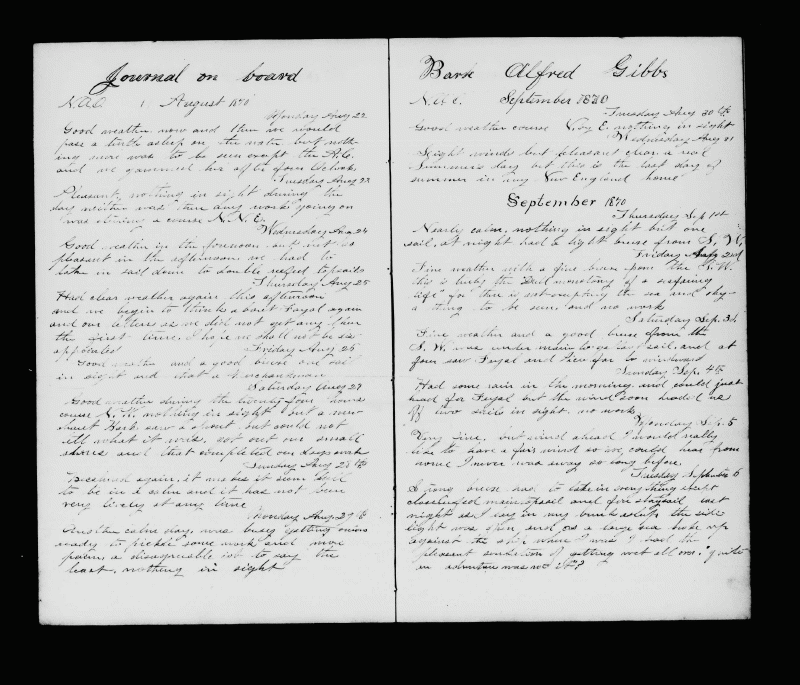 Journal on board
August 1870
Monday Aug 22
Good weather now and then we would
pass a turtle asleep on the water but noth-
ing more was to be seen except the A. C.
and we gammed her after four Oclock
Tuesday Aug 23
Pleasant, nothing in sight during the
day neither was there any work going on
was steering a course N.N.E.
Wednesday Aug 24
Good weather in the forenoon but not so
pleasant in the afternoon we had to
take in sail down to double reefed topsails
Thursday Aug 25
Had clear weather again this afternoon
and we begin to think about Fayal again
and our letters as we did not get any from
the first time, I hope we shall not be so
Friday Aug 26
Good weather and a good breeze one sail
in sight and that a merchantman
Saturday Aug 27
Good weather during the twenty four hours
course N. W. nothing in sight but a mer-
chant Bark saw a spout but could not
tell what it was, got out our small
and that completed our days work
Sunday Aug 28th
Becalmed again, it makes it seem hard
to be in a calm and it has not been
very lively at any time
Monday Aug 29th
Another calm day, was busy getting onions
ready to pickle some work and more
a disagreeable job to say the
least, nothing in sight
Bark Alfred Gibbs
September 1870
Tuesday Aug 30th
Good weather course N. by E. nothing in sight
Wednesday Aug 31
Slight winds but pleasant clear a real
Summers day but this is the last day of
summer in my New England home
September 1870
Thursday Sep 1st
Nearly calm, nothing in sight but one
sail, at night had a light breeze from S. W.
Friday 2nd
Fine weather with a fine breeze from the S.W.
this is truly the Dull monotony of a seafaring
life for there is not excepting the sea and sky
a thing to be seen, and no work
Saturday Sep. 3d.
Fine weather and a good breeze from the
S. W. was under main to ga lant sail, and at
four saw Fayal and
Sunday Sep. 4th
Had some rain in the morning, and could just
head for Fayal but the wind soon headed us
off two sails in sight, no work
Monday Sep. 5
Very fine, but wind ahead I would really
like to have a fair wind so we could hear from
home I never was away so long before.
Tuesday September 6
Strong breeze had to take in everything except
close reefed main topsail and fore staysail last
night as I lay in my bunk asleep the side
light was open and as a large sea broke up
against the ship where I was I had the
"pleasant sensation of getting wet all over." quite
an adventure was not it?